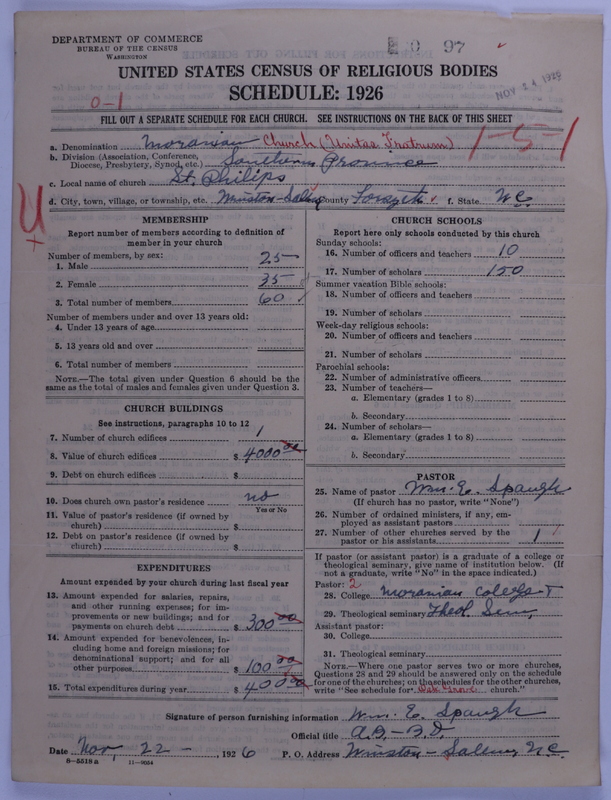 DEPARTMENT OF COMMERCE
BUREAU OF THE CENSUS
WASHINGTON
97
NOV 24 1926
UNITED STATES CENSUS OF RELIGIOUS BODIES
SCHEDULE: 1926
0-1
FILL OUT A SEPARATE SCHEDULE FOR EACH CHURCH. SEE INSTRUCTIONS ON THE BACK OF THIS SHEET
1-5-1
a. Denomination Moravian Church (Unitas Fratrum)
b. Division (Association, Conference, Diocese, Presbytery, Synod, etc.) Southern Province
c. Local name of church St. Philips
d. City, town, village, or township, etc. Winston-Salem County Forsyth f. State N.C.
MEMBERSHIP
Report number of members according to definition of
member in your church
Number of members, by sex:
1. Male 25
2. Female 35
3. Total number of members 60
Number of members under and over 13 years old:
4. Under 13 years of age
5. 13 years old and over
6. Total number of members
NOTE.—The total given under Question 6 should be the
same as the total of males and females given under Question 3.
CHURCH BUILDINGS
See instructions, paragraphs 10 to 12
7. Number of church edifices 1
8. Value of church edifices $ 4000 00
9. Debt on church edifices $
10. Does church own pastor's residence no
Yes or No
11. Value of pastor's residence (if owned by
church) $
12. Debt on pastor's residence (if owned by
church) $
EXPENDITURES
Amount expended by your church during last fiscal year
13. Amount expended for salaries, repairs,
and other running expenses; for im-
provements or new buildings; and for
payments on church debt $ 300 00
14. Amount expended for benevolences, in-
cluding home and foreign missions; for
denominational support; and for all
other purposes $ 100 00
15. Total expenditures during year $ 400 00
CHURCH SCHOOLS
Report here only schools conducted by this church
Sunday schools:
16. Number of officers and teachers 10
17. Number of scholars 150
Summer vacation Bible schools:
18. Number of officers and teachers
19. Number of scholars
Week-day religious schools:
20. Number of officers and teachers
21. Number of scholars
Parochial schools:
22. Number of administrative officers
23. Number of teachers—
a. Elementary (grades 1 to 8)
b. Secondary
24. Number of scholars—
a. Elementary (grades 1 to 8)
b. Secondary
PASTOR
25. Name of pastor Wm. E. Spaugh
(If church has no pastor, write "None")
26. Number of ordained ministers, if any, em-
ployed as assistant pastors
27. Number of other churches served by the
pastor or his assistants 1
If pastor (or assistant pastor) is a graduate of a college or
theological seminary, give name of institution below. (If
not a graduate, write "No" in the space indicated.)
Pastor: 2
28. College Moravian College &
29. Theological seminary Theol. Sem.
Assistant pastor:
30. College
31. Theological seminary
NOTE.—Where one pastor serves two or more churches,
Questions 28 and 29 should be answered only on the schedule
for one of the churches; on the schedules for the other churches,
write "See schedule for Oak Grove church."
Signature of person furnishing information Wm. E. Spaugh
Official title A.B.-B.D.
Date Nov. 22, 1926 P. O. Address Winston-Salem, N.C.
8-5518 a 11-9054